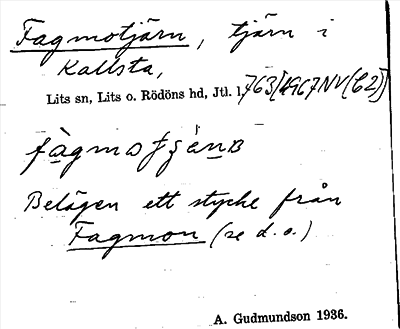 Fagmotjärn, tjärn i
Kallsta,
Lits sn, Lits o. Rödöns hd, Jtl. l.
Belägen ett stycke från
Fagmon (se d. o.)
A. Gudmundson 1936.